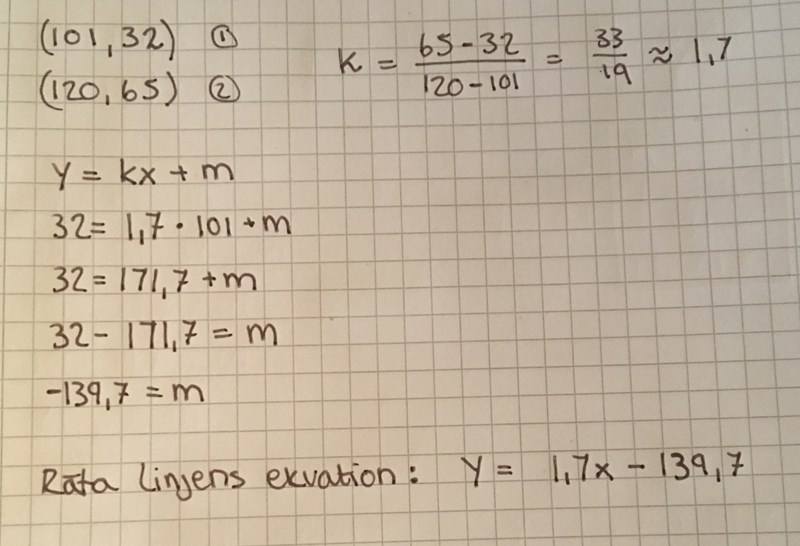 (101,32) ①
(120,65) ②
k = 65-32 / 120-101 = 33/19 ≈ 1,7
y = kx + m
32 = 1,7 · 101 + m
32 = 171,7 + m
32 - 171,7 = m
-139,7 = m
Räta linjens ekvation: y = 1,7x - 139,7